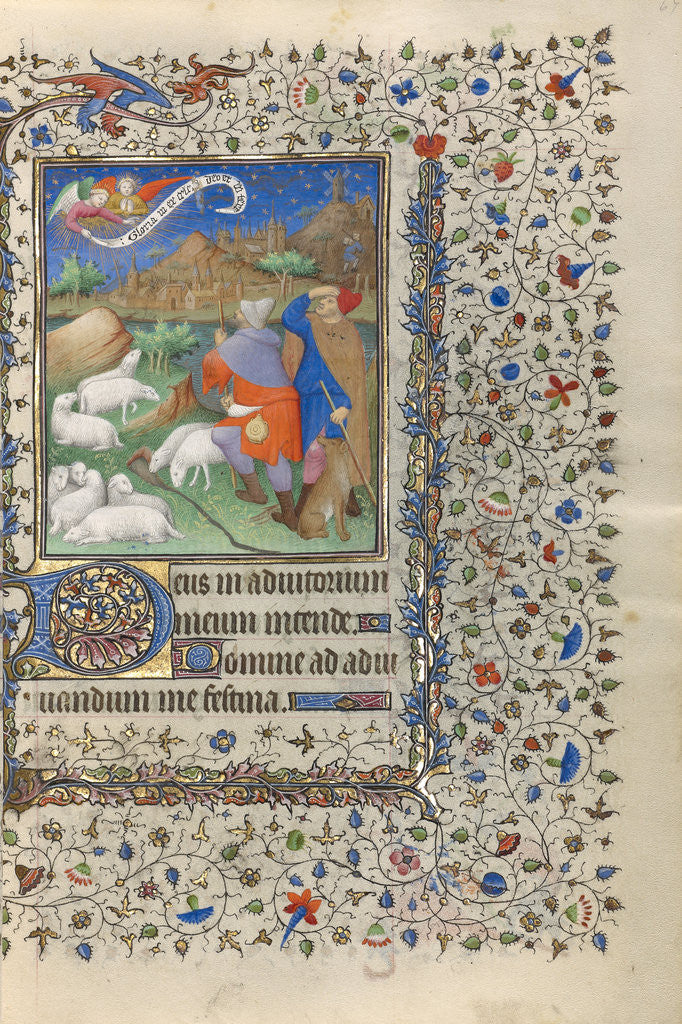 Gloria in excelc deo et in terra
Deus in adiutorium
meum intende.
Domine ad adiu
uandum me festina.